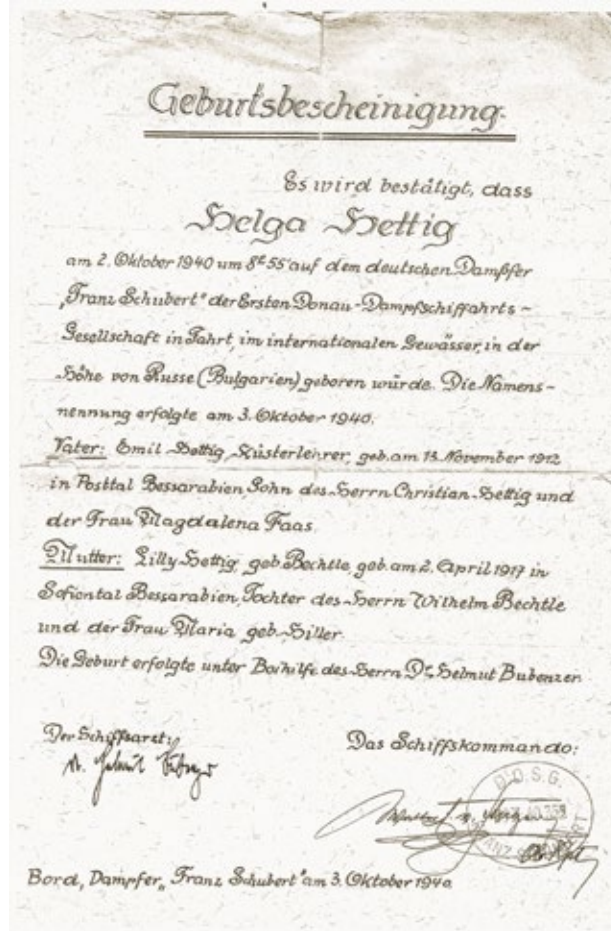 Geburtsbescheinigung.
Es wird bestätigt, dass
Helga Hettig
am 2. Oktober 1940 um 8 55 auf dem deutschen Dampfer
„Franz Schubert" der Ersten Donau-Dampfschiffahrts-
Gesellschaft in Fahrt, im internationalen Gewässer, in der
Höhe von Russe (Bulgarien) geboren würde. Die Namens-
nennung erfolgte am 3. Oktober 1940.
Vater: Emil Hettig, Küsterlehrer, geb. am 13. November 1912
in Posttal Bessarabien Sohn des Herrn Christian Hettig und
der Frau Magdalena Faas.
Mutter: Lilly Hettig geb. Bechtle, geb. am 2. April 1917 in
Sofiental Bessarabien, Tochter des Herrn Wilhelm Bechtle
und der Frau Maria geb. Hiller.
Die Geburt erfolgte unter Beihilfe des Herrn Dr. Helmut Bubenzer.
Der Schiffsarzt:
Das Schiffskommando:
D.D.S.G.
Bord, Dampfer „Franz Schubert" am 3. Oktober 1940